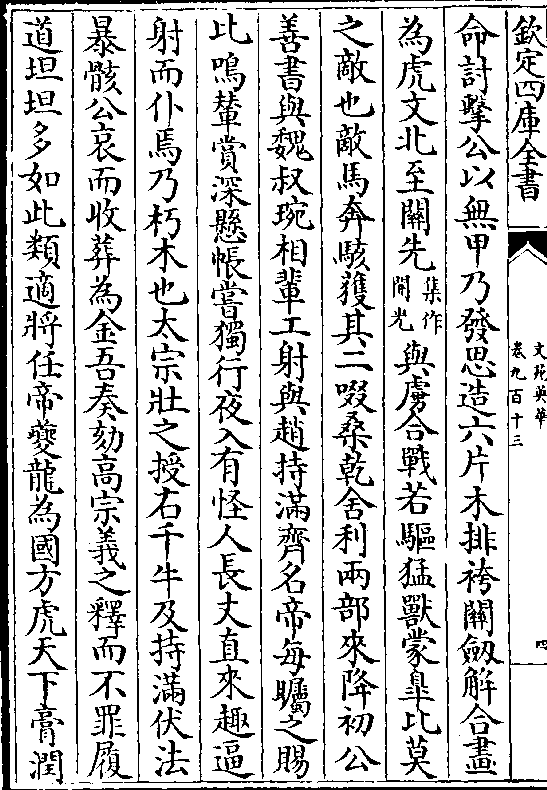 欽定四庫全書
文苑英華
卷九百十三
四
命討擊公以無甲乃發思造六片木排袴關劔解合畫
為虎文北至闗先集作開光與虜合戰若驅猛獸蒙臯比莫
之敵也敵馬奔駭獲其二啜桑乾舍利兩部來降初公
善書與魏叔琬相輩工射與趙持滿齊名帝每矚之賜
此鳴輦賞深懸帳嘗獨行夜入有怪人長丈直來趣逼
射而仆焉乃朽木也太宗壯之授右千牛及持滿伏法
暴骸公哀而收葬為金吾奏劾高宗義之釋而不罪履
道坦坦多如此類適將任帝夔龍為國方虎天下膏潤